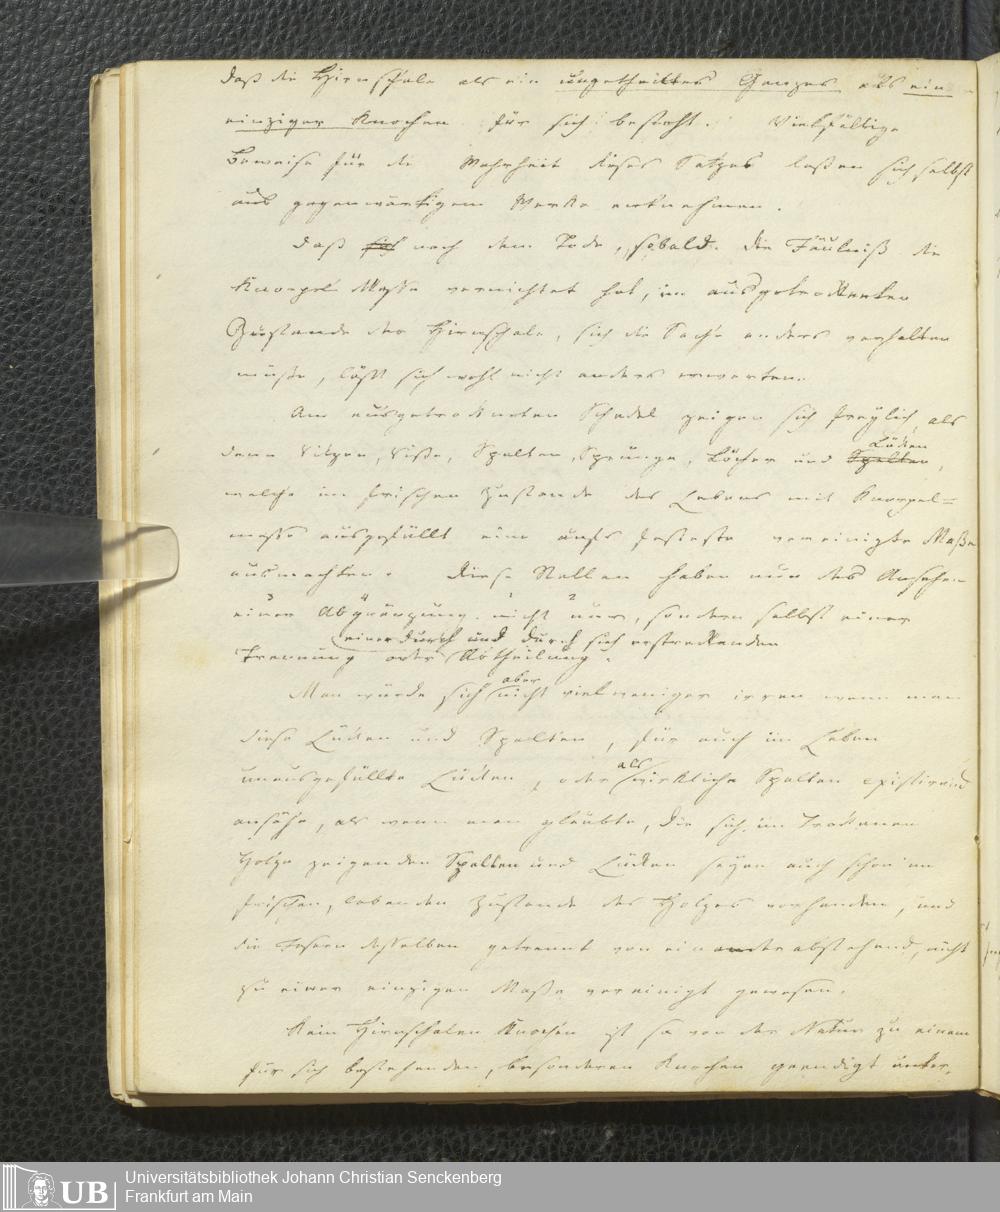 daß die Hirnschale als ein ungetheiltes Ganzes als ein
einziger Knochen für sich besteht. Vielfältige
Beweise für die Wahrheit dieses Satzes laßen sich selbst
aus gegenwärtigem Werke entnehmen.
Daß nach dem Tode, sobald die Fäulniß die
Knorpel Masse vernichtet hat, im ausgetrockneten
Zustande der Hirnschale, sich die Sache anders verhalten
müße, läßt sich wohl nicht anders erwarten.
Am ausgetrockneten Schedel zeigen sich freylich als
denn Ritzen, Riße, Spalten, Sprünge, Löcher und Spalten Lücken,
welche im frischen Zustande des Lebens mit Knorpel=
masse ausgefüllt eine aufs festeste vereinigte Maße
ausmachten. Diese Stellen haben nun das Ansehen
einer Abgränzung nicht nur, sondern selbst einer
einer durch und durch sich erstreckenden
Trennung oder Abtheilung.
Man würde sich aber nicht viel weniger irren wenn man
diese Lücken und Spalten, für auch im Leben
unausgefüllte Lücken, oder als wirkliche Spalten existirend
ansähe, als wenn man glaubte, die sich im trocknen
Holze zeigenden Spalten und Lücken seyen auch schon im
frischen, lebenden Zustande des Holzes vorhanden, und
die Fasern desselben getrennt von einander abstehend, nicht
zu einer einzigen Maße vereinigt gewesen.
Kein Hirnschalen Knochen ist so von der Natur zu einem
für sich bestehenden, besonderen Knochen geendigt unter,
Universitätsbibliothek Johann Christian Senckenberg
Frankfurt am Main
UB